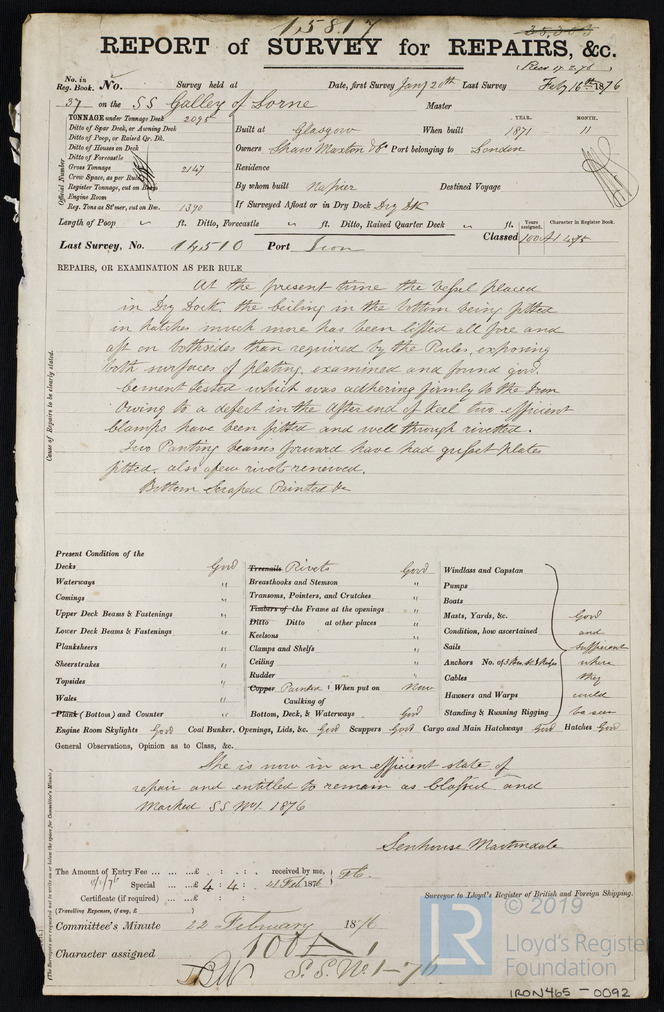 15817
35,303
REPORT of SURVEY for REPAIRS, &c.
Recd 17.2.76
No. in Reg. Book. No. Survey held at Date, first Survey Jany 20th Last Survey Feby 16th 1876
37 on the SS Galley of Lorne Master
TONNAGE under Tonnage Deck 2095
Ditto of Spar Deck, or Awning Deck
Ditto of Poop, or Raised Qr. Dk.
Ditto of Houses on Deck
Ditto of Forecastle
Gross Tonnage 2147
Crew Space, as per Rule
Register Tonnage, cut on Beam
Engine Room
Reg. Tons as St'mer, cut on Bm. 1370
Official Number
Built at Glasgow When built YEAR. 1871 MONTH. 11
Owners Shaw Maxton &Co Port belonging to London
Residence
By whom built Napier Destined Voyage
If Surveyed Afloat or in Dry Dock Dry Dk
Length of Poop " ft. Ditto, Forecastle " ft. Ditto, Raised Quarter Deck " ft.
Years assigned. Character in Register Book.
Last Survey, No. 14510 Port Iron Classed 100A1 2,75
REPAIRS, OR EXAMINATION AS PER RULE
Cause of Repairs to be clearly stated.
At the present time the vessel placed
in Dry Dock. the Ceiling in the bottom being fitted
in hatches much more has been lifted all fore and
aft on bothsides than required by the Rules, exposing
both surfaces of plating, examined and found good.
Cement tested which was adhering firmly to the Iron
Owing to a defect in the After end of Keel two efficient
Clamps have been fitted and well through rivetted.
Two Panting beams forward have had gusset plates
fitted. also a few rivets renewed.
Bottom Scraped Painted &c
Present Condition of the
Decks Good
Waterways "
Comings "
Upper Deck Beams & Fastenings "
Lower Deck Beams & Fastenings "
Planksheers "
Sheerstrakes "
Topsides "
Wales "
Plank (Bottom) and Counter "
Treenails Rivets Good
Breasthooks and Stemson "
Transoms, Pointers, and Crutches "
Timbers of the Frame at the openings "
Ditto Ditto at other places "
Keelsons "
Clamps and Shelfs "
Ceiling "
Rudder "
Copper Painted When put on Now
Caulking of
Bottom, Deck, & Waterways Good
Windlass and Capstan
Pumps
Boats
Masts, Yards, &c.
Condition, how ascertained
Sails
Anchors No. of
Cables
Hawsers and Warps
Standing & Running Rigging
Good
and
sufficient
where
they
could
be seen
Engine Room Skylights Good Coal Bunker, Openings, Lids, &c. Good Scuppers Good Cargo and Main Hatchways Good Hatches Good
General Observations, Opinion as to Class, &c.
She is now in an efficient state of
repair and entitled to remain as Classed and
Marked SS No1. 1876
Senhouse Martindale
The Amount of Entry Fee £ : : received by me,
Special £ 4 : 4 : 21 Feb 1876
Certificate (if required)
(Travelling Expenses, if any, £ )
Surveyor to Lloyd's Register of British and Foreign Shipping.
Committee's Minute 22 February 1876
Character assigned 100A1
S.S. No 1-76
(The Surveyors are requested not to write on or below the space for Committee's Minute.)
© 2019
LR
Lloyd's Register
Foundation
IRON465-0092